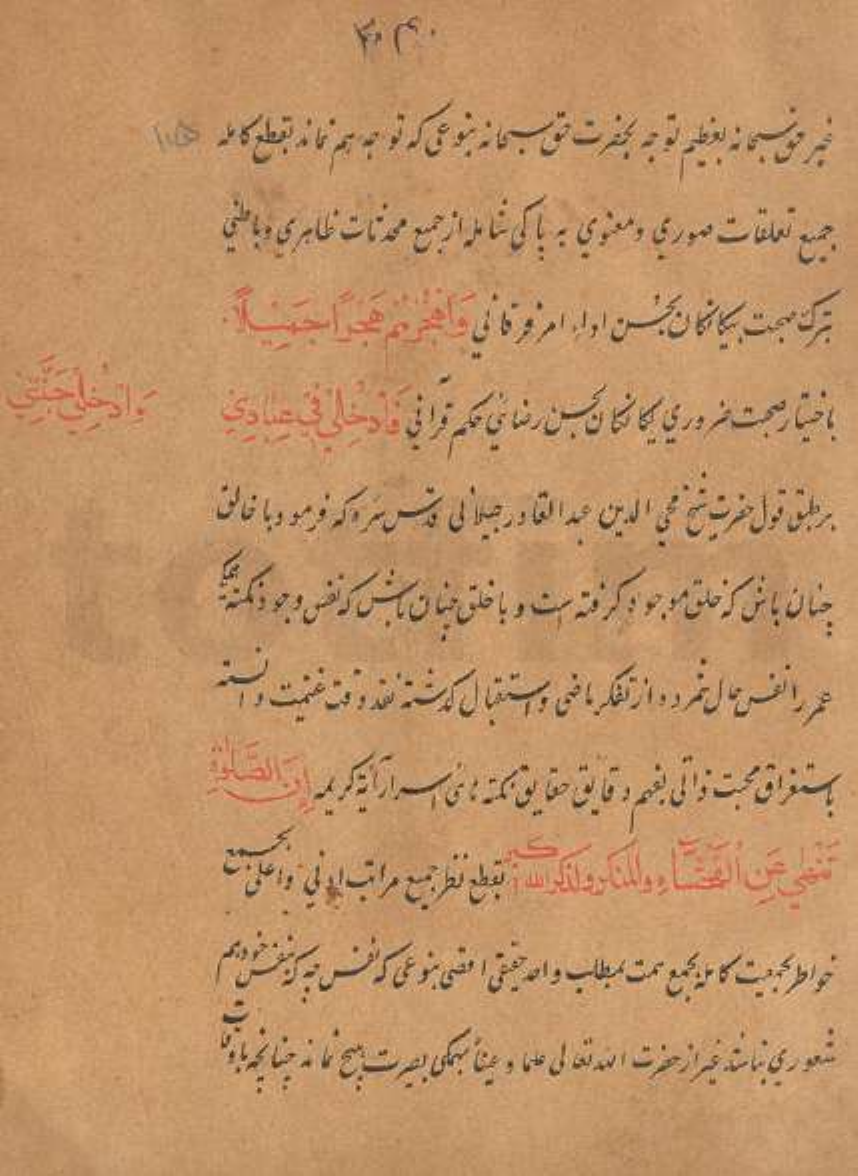 غیر حق سبحانه بغطیم توجه بحضرت حق سبحانه بنوعی که توجه هم نماند بقطع کامله
جمیع تعلقات صوری و معنوی به پاکی شامله از جمیع محدثات ظاهری و باطنی
بترک صحبت بیکانکان بحسن اداء امر فرقانی وَاهْجُرْهُمْ هَجْرًا جَمِيلًا
باختیار صحبت ضروری یکانکان بحسن رضای حکم قرآنی فَادْخُلِي فِي عِبَادِي
وَادْخُلِي جَنَّتِي
برطبق قول حضرت شیخ محی الدین عبدالقادر جیلانی قدس سره که فرمود با خالق
چنان باش که خلق موجود نکرفته است و با خلق چنان باش که نفس وجود نکرفته
عمر را نفس حال شمرده و از تفکر ماضی و استقبال کذشته نقد وقت غنیمت دانسته
باستغراق محبت ذاتی بفهم دقایق حقایق نکته های اسرار آیة کریمه إِنَّ الصَّلٰوةَ
تَنْهٰى عَنِ الْفَحْشَاءِ وَالْمُنْكَرِ وَلَذِكْرُ اللهِ أَكْبَر بقطع نظر جمیع مراتب ادنی و اعلی بجمیع
خواطر بجمعیت کامله بجمع همت بمطلب واحد حقیقی اقصی بنوعی که نفس چه که بنفس خود هم
شعوری نباشد غیر از حضرت الله تعالی علما و عیناً بهمکی بصیرت هیچ نماند چنانچه باوقات